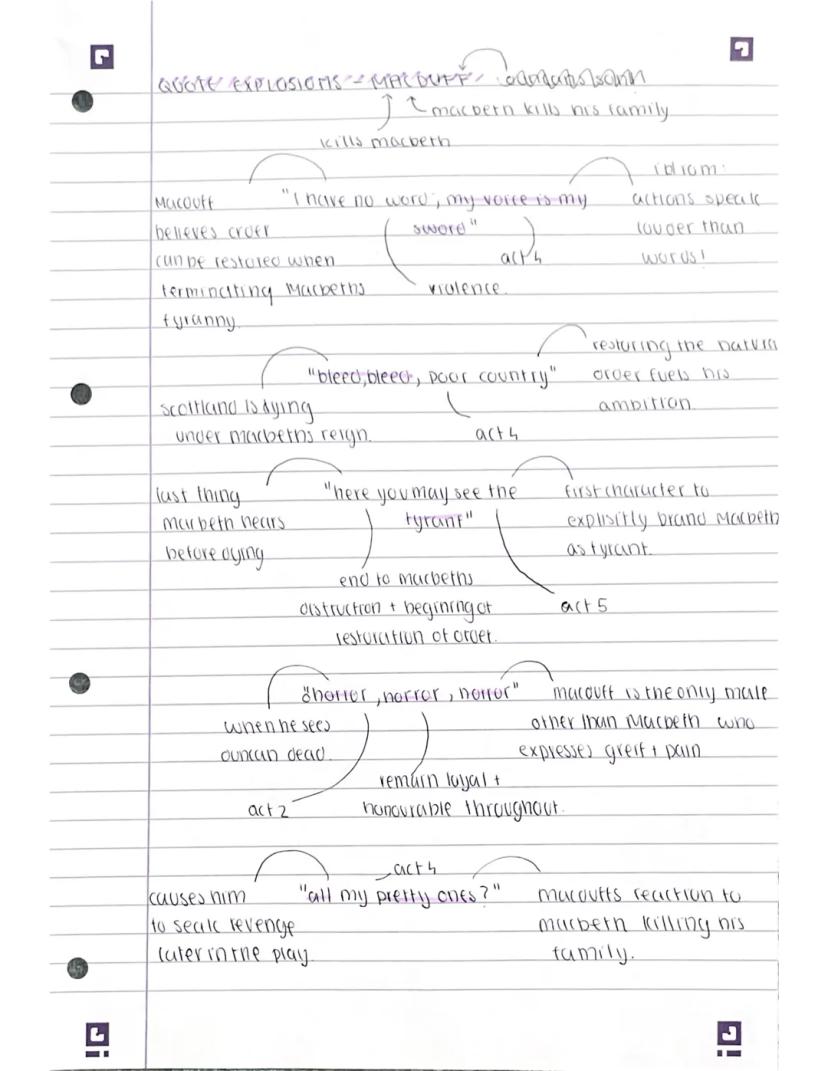 QUOTE EXPLOSIONS - MACDUFF
macbeth kills his family
kills macbeth
idiom:
Macduff "I have no word, my voice is my actions speak
believes order sword" louder than
can be restored when act 4 words!
terminating Macbeths violence.
tyranny.
restoring the natural
"bleed, bleed, poor country" order fuels his
scotland is dying ambition.
under macbeths reign. act 4
last thing "here you may see the first character to
macbeth hears tyrant" explisitly brand Macbeth
before dying as tyrant.
end to macbeths
distruction + begining of act 5
restoration of order.
"horror, horror, horror" macduff is the only male
when he sees other than Macbeth who
duncan dead. expresses greif + pain
remain loyal +
act 2 honourable throughout.
act 4
causes him "all my pretty ones?" macduffs reaction to
to seak revenge macbeth killing his
later in the play. family.